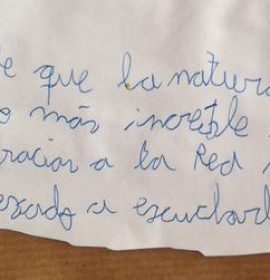 que la natura
más increíble
gracias a la Red
a escuchar